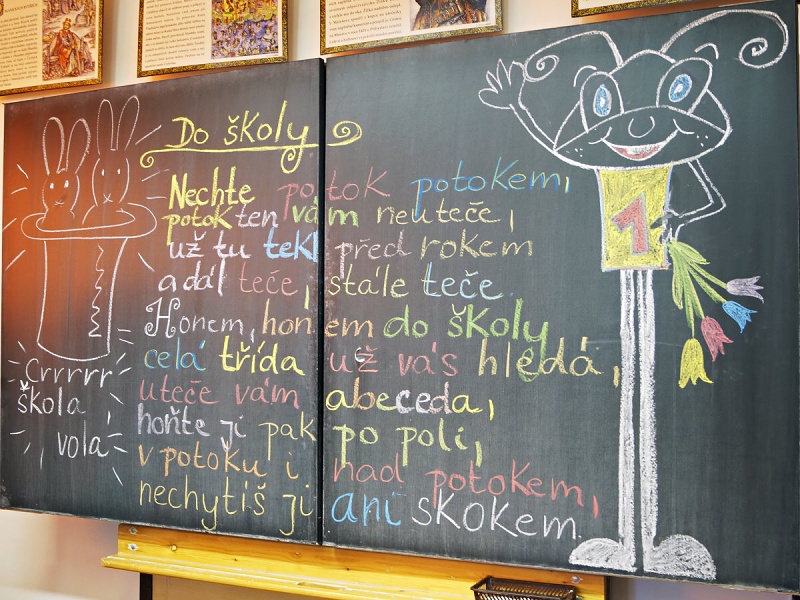 Do školy
Nechte potok potokem,
potok ten vám neuteče,
už tu tekl před rokem
a dál teče, stále teče.
Honem, honem do školy
celá třída už vás hledá,
uteče vám abeceda,
hoňte ji pak po poli,
v potoku i nad potokem,
nechytíš ji ani skokem.
Crrrrrr
škola
volá
1